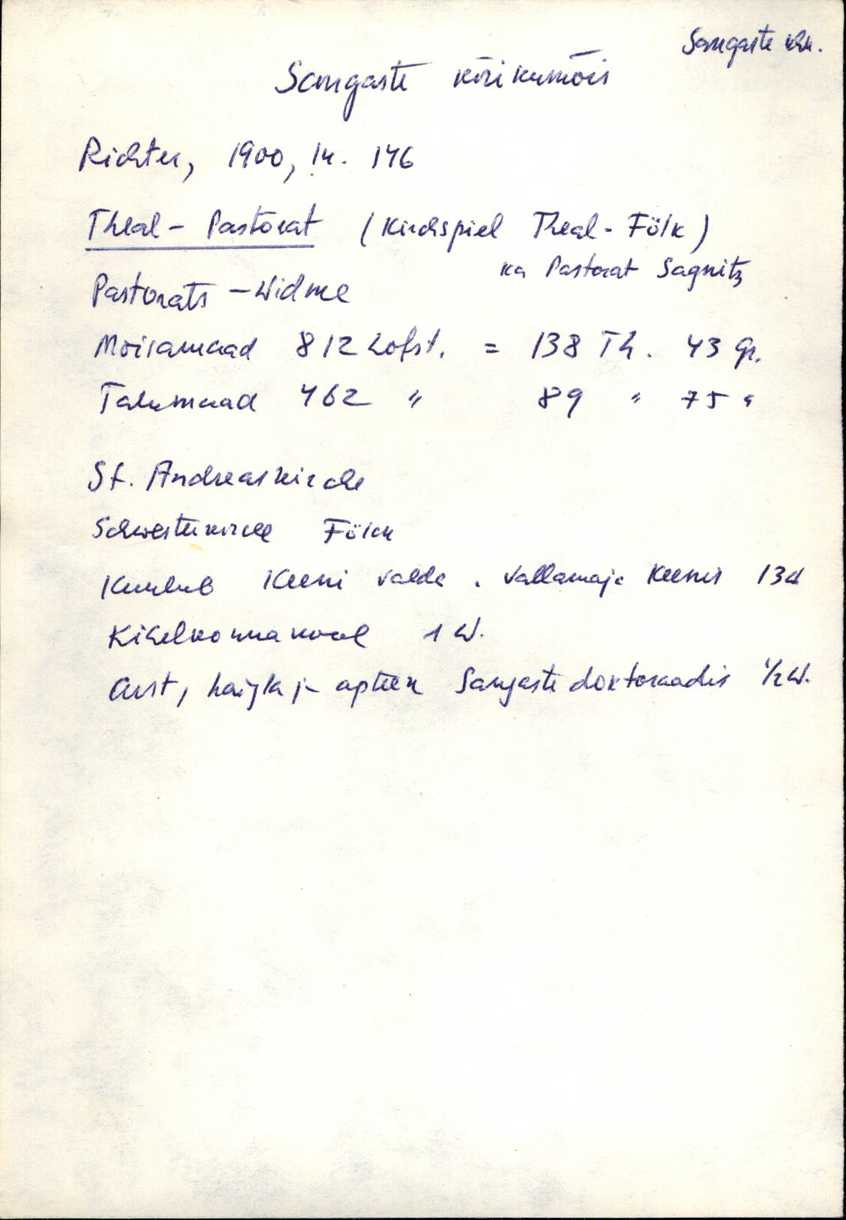 Sangaste khk.
Sangaste kirikumõis
Richter, 1900, lk. 146
Theal - Pastorat (Kirchspiel Theal - Fölk)
ka Pastorat Sagnitz
Pastorats - Widme
Mõisamaad 812 Lofst. = 138 Th. 43 Gr.
Talumaad 462 " 89 " 75 "
St. Andreaskirche
Schwesterkirche Fölk
Kuulub Keeni valda. Vallamaja Keenis 13 W
Kihelkonnakool 1 W.
Arst, haigla ja apteek Sangaste doktoraadis 1/2 W.